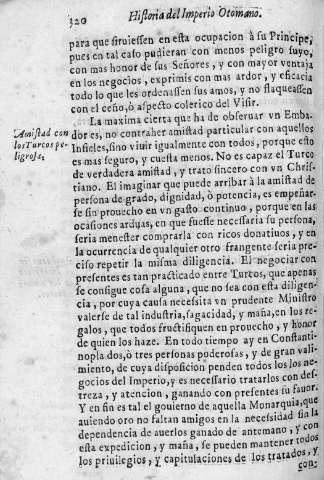 320
Historia del Imperio Otomano.
para que siruiessen en esta ocupacion à su Principe,
pues en tal caso pudieran con menos peligro suyo,
con mas honor de sus Señores, y con mayor ventaja
en los negocios, exprimis con mas ardor, y eficacia
todo lo que les ordenassen sus amos, y no flaqueassen
con el ceño, ò aspecto colerico del Visir.
La maxima cierta que ha de obseruar vn Emba-
dor es, no contraher amistad particular con aquellos
Infieles, sino viuir igualmente con todos, porque esto
es mas seguro, y cuesta menos. No es capaz el Turco
de verdadera amistad, y trato sincero con vn Chris-
tiano. El imaginar que puede arribar à la amistad de
persona de grado, dignidad, ò potencia, es empeñar-
se sin prouecho en vn gasto continuo, porque en las
ocasiones arduas, en que fuesse necessaria su persona,
seria menester comprarla con ricos donatiuos, y en
la ocurrencia de qualquier otro frangente seria pre-
ciso repetir la misma diligencia. El negociar con
presentes es tan practicado entre Turcos, que apenas
se consigue cosa alguna, que no sea con esta diligen-
cia, por cuya causa necessita vn prudente Ministro
valerse de tal industria, sagacidad, y maña, en los re-
galos, que todos fructifiquen en prouecho, y honor
de quien los haze. En todo tiempo ay en Constanti-
nopla dos, ò tres personas poderosas, y de gran vali-
miento, de cuya disposicion penden todos los ne-
gocios del Imperio, y es necessario tratarlos con des-
treza, y atencion, ganando con presentes su fauor.
Y en fin es tal el gouierno de aquella Monarquia, que
auiendo oro no faltan amigos en la necessidad sin la
dependencia de auerlos ganado de antemano, y con
esta expedicion, y maña, se pueden mantener todos
los priuilegios, y capitulaciones de los tratados, y
con-
Amistad con
los Turcos pe-
ligrosa.